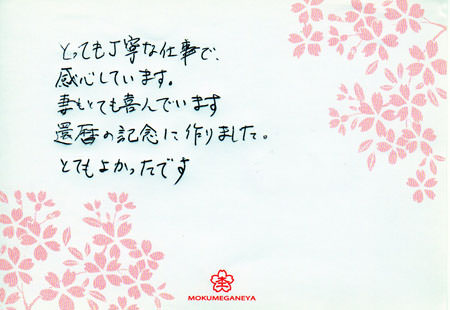 とっても丁寧な仕事で、
感心しています。
妻もとても喜んでいます
還暦の記念に作りました。
とてもよかったです
MOKUMEGANEYA